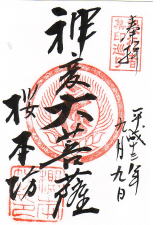 奉拝
神変大菩薩
桜本坊
平成十三年
九月九日